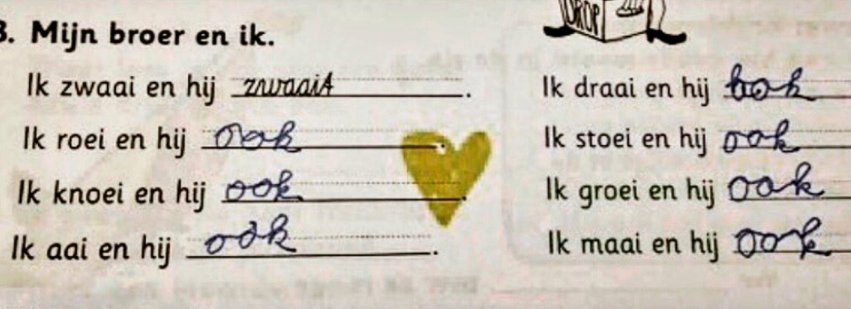 DROP
3. Mijn broer en ik.
Ik zwaai en hij zwaait. Ik draai en hij ook
Ik roei en hij ook. Ik stoei en hij ook
Ik knoei en hij ook. Ik groei en hij ook
Ik aai en hij ook. Ik maai en hij ook